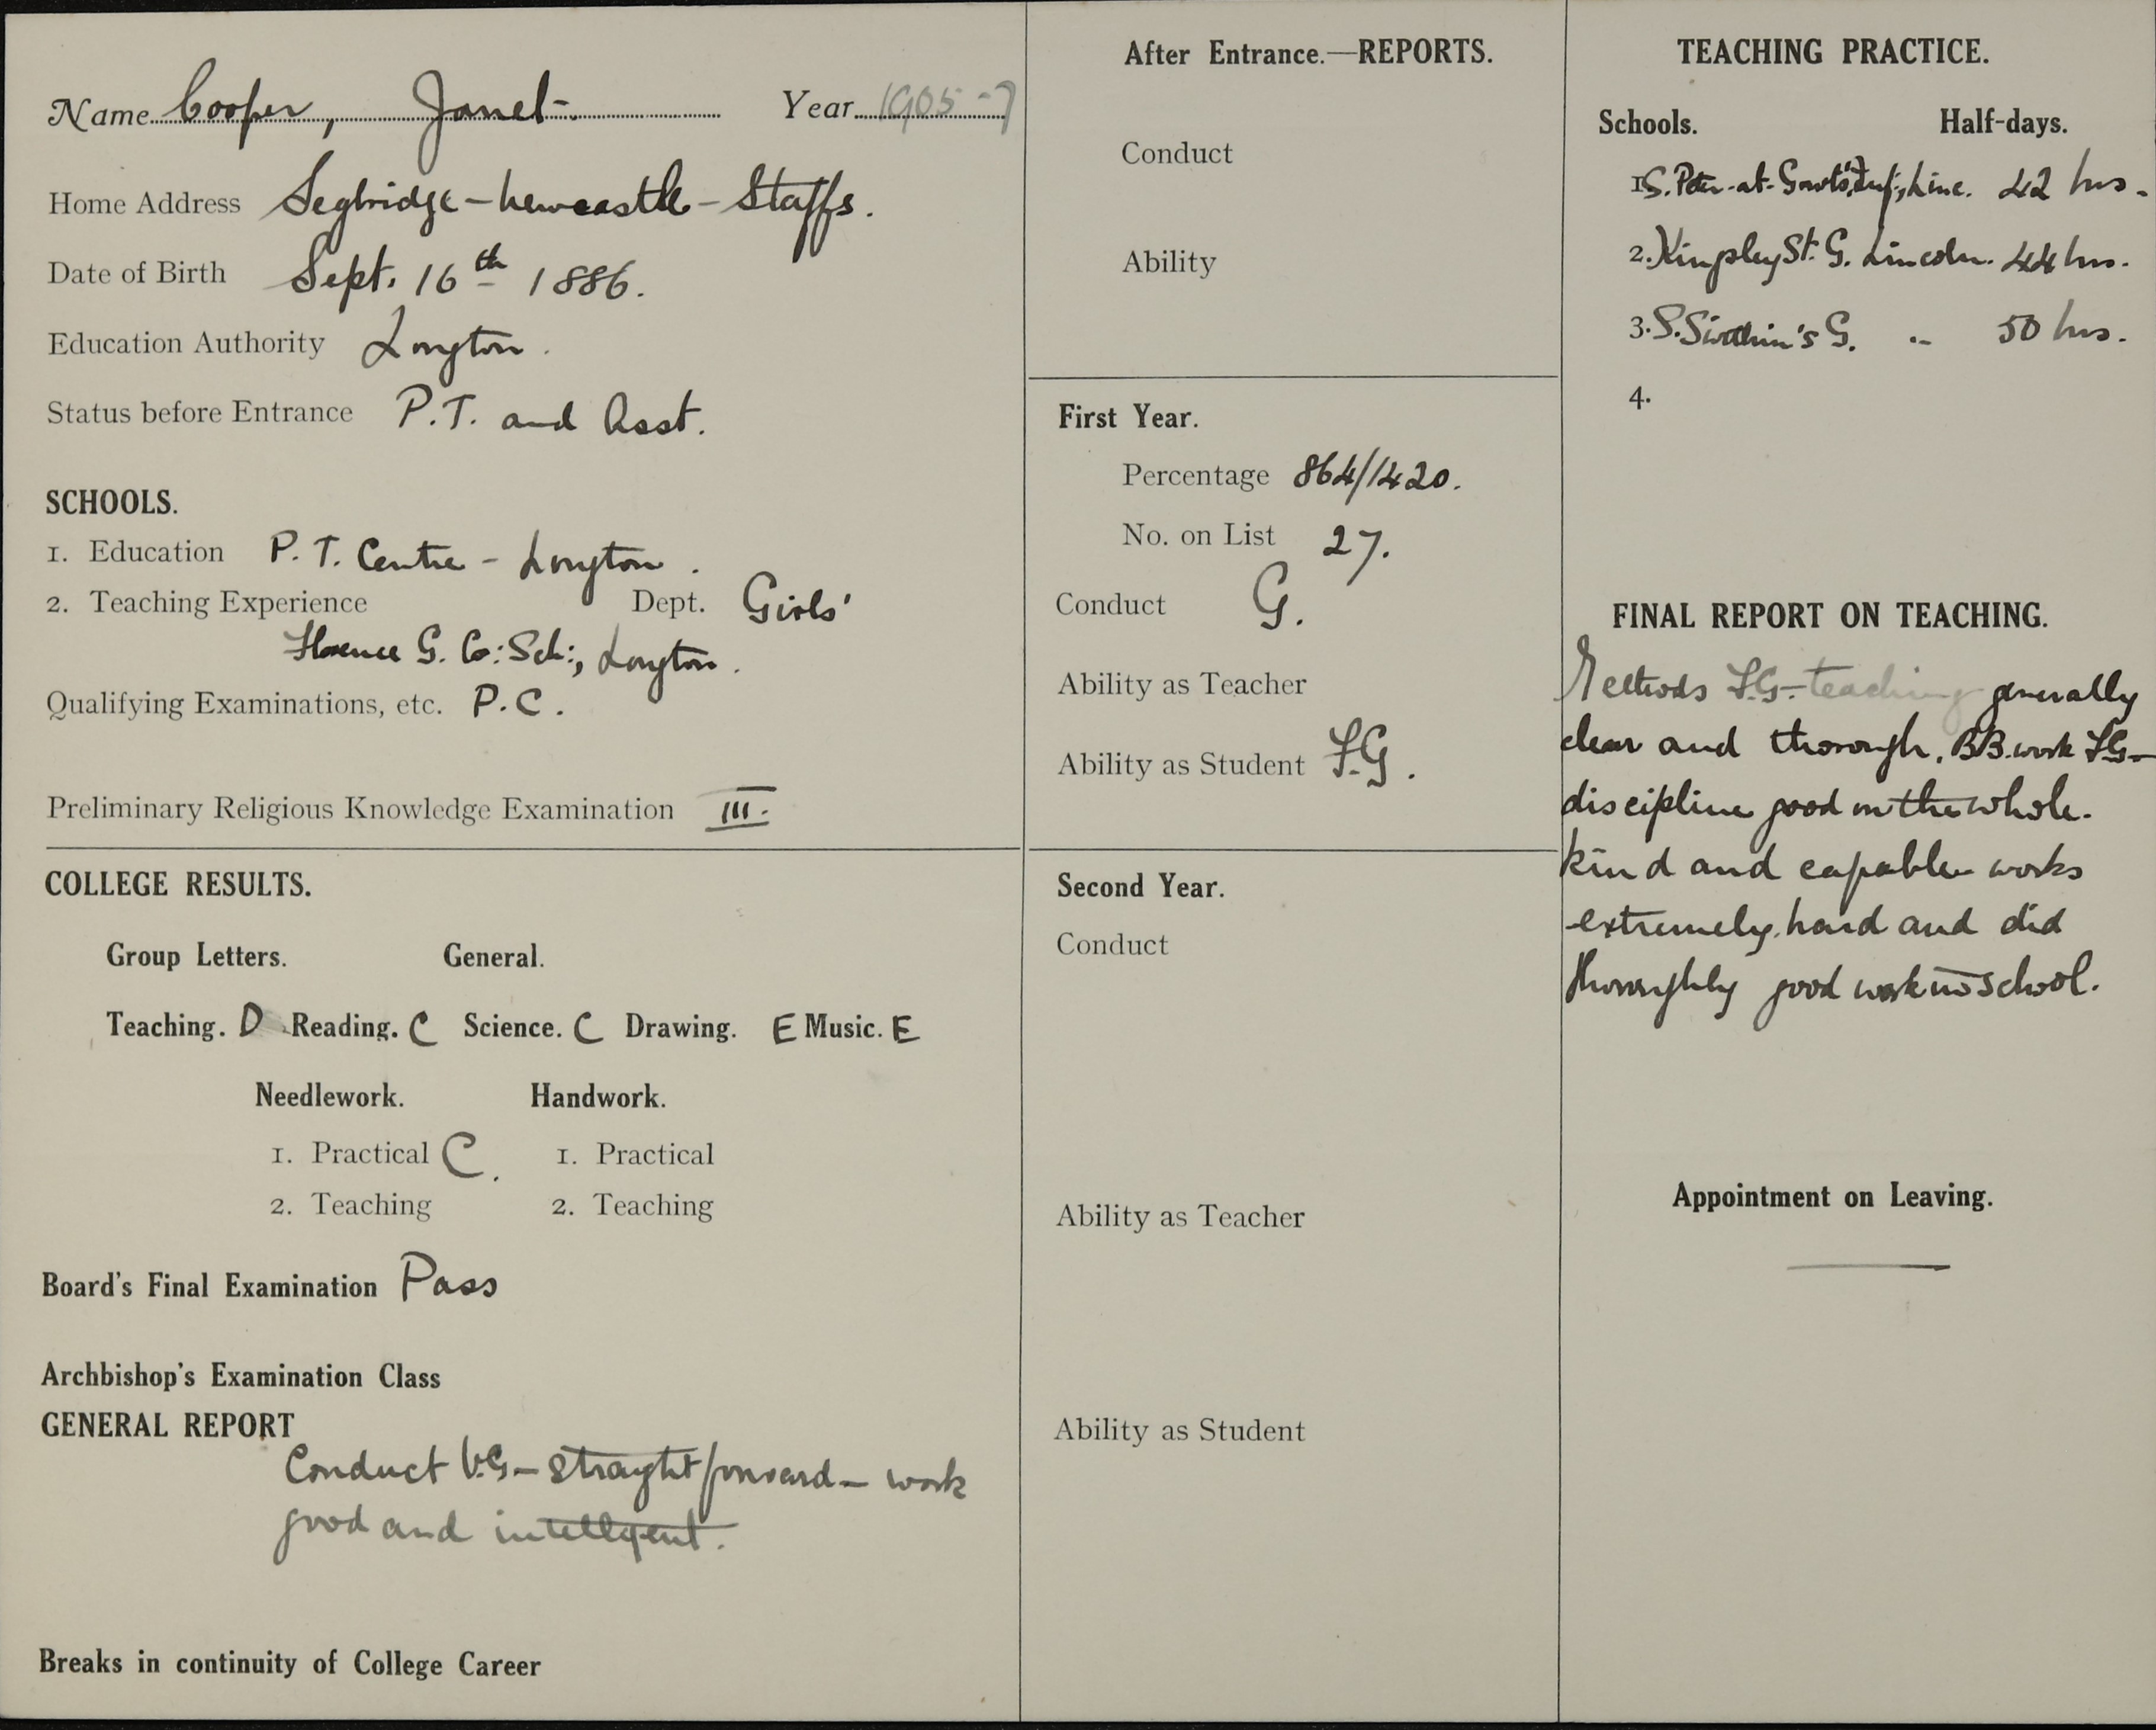 Name Cooper, Janet. Year 1905-7
Home Address Segbridge - Newcastle - Staffs.
Date of Birth Sept. 16th 1886.
Education Authority Longton.
Status before Entrance P.T. and Asst.
SCHOOLS.
1. Education P.T. Centre - Longton.
2. Teaching Experience Dept. Girls'
Florence G. Co: Sch:, Longton.
Qualifying Examinations, etc. P.C.
Preliminary Religious Knowledge Examination III.
COLLEGE RESULTS.
Group Letters. General.
Teaching. D Reading. C Science. C Drawing. E Music. E
Needlework. Handwork.
1. Practical C. 1. Practical
2. Teaching 2. Teaching
Board's Final Examination Pass
Archbishop's Examination Class
GENERAL REPORT
Conduct V.G - straightforward - work
good and intelligent.
Breaks in continuity of College Career
After Entrance.—REPORTS.
Conduct
Ability
First Year.
Percentage 864/1420.
No. on List 27.
Conduct G.
Ability as Teacher
Ability as Student F.G.
Second Year.
Conduct
Ability as Teacher
Ability as Student
TEACHING PRACTICE.
Schools. Half-days.
1 S. Peter-at-Gowts' Inf., Linc. 42 hrs.
2. Kingsley St. G. Lincoln. 44 hrs.
3. S. Swithin's G. " 50 hrs.
4.
FINAL REPORT ON TEACHING.
Methods F.G - teaching generally
clear and thorough. BB. work F.G -
discipline good on the whole.
kind and capable - works
extremely hard and did
thoroughly good work in school.
Appointment on Leaving.